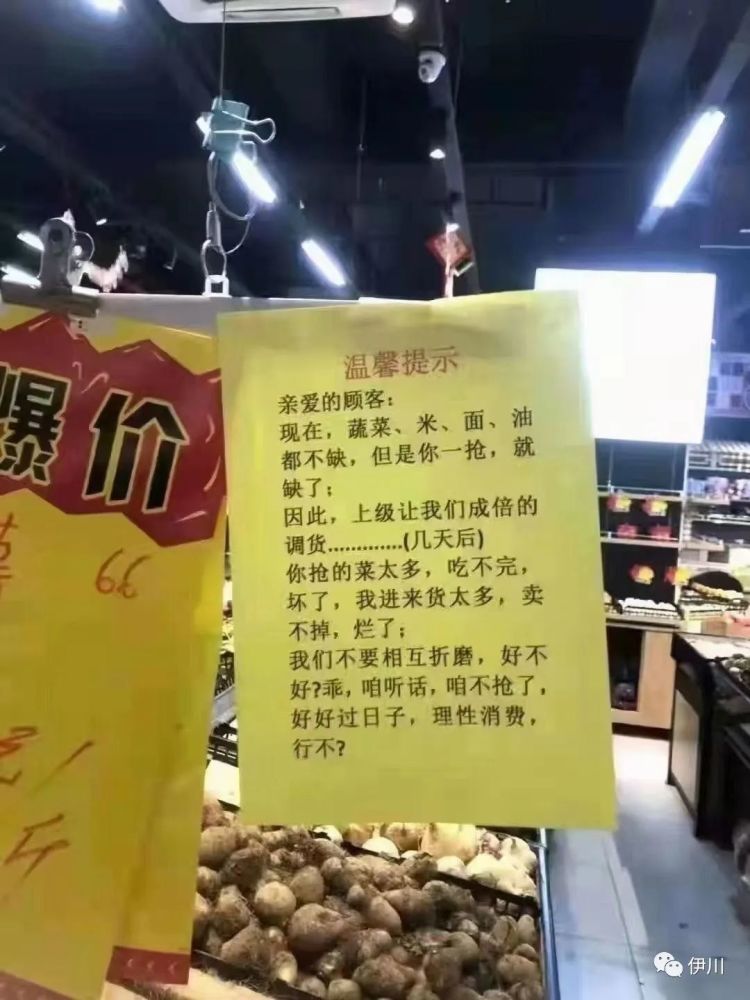 温馨提示
亲爱的顾客：
现在，蔬菜、米、面、油
都不缺，但是你一抢，就
缺了；
因此，上级让我们成倍的
调货.............(几天后)
你抢的菜太多，吃不完，
坏了，我进来货太多，卖
不掉，烂了；
我们不要相互折磨，好不
好?乖，咱听话，咱不抢了，
好好过日子，理性消费，
行不?
爆价
99
斤
伊川